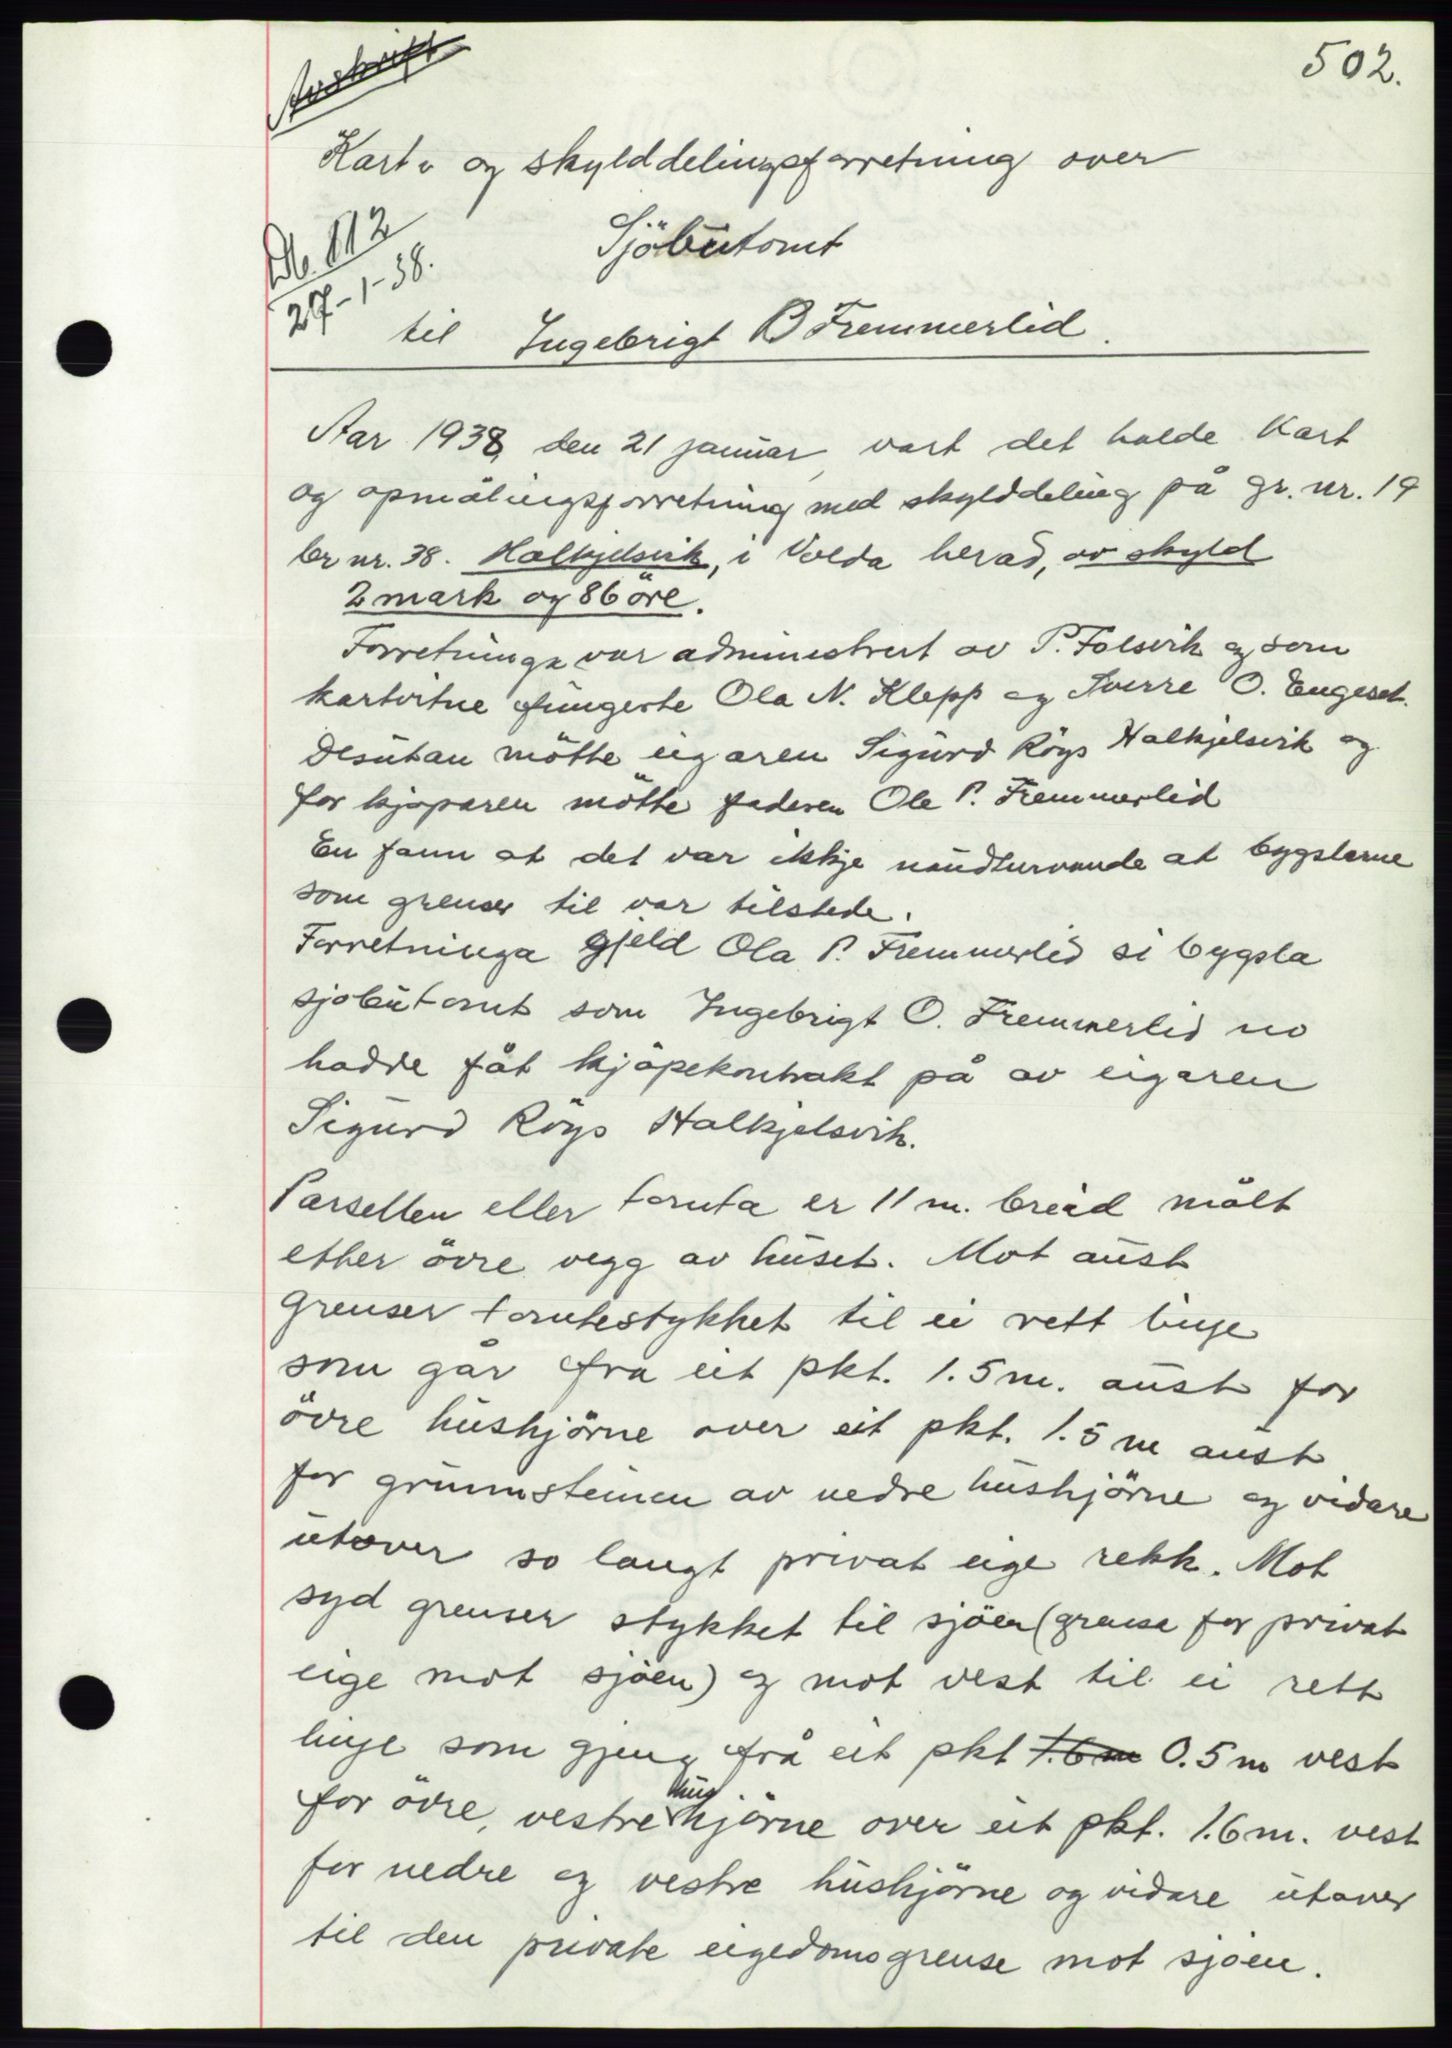 Avskrift
502.
Kart- og skylddelingsforretning over
Db. 112
27-1-38.
Sjöbutomt
til Ingebrigt B Fremmerlid.
Aar 1938, den 21 januar, vart det halde Kart
og opmålingsforretning med skylddeling på gr. nr. 19
br nr. 38. Halkjelsvik, i Volda herad, av skyld
2 mark og 86 öre.
Forretninga var administrert av P. Folsvik og som
kartvitne fungerte Ola N. Klepp og Sverre O. Engeset.
Desutan mötte eigaren Sigurd Röys Halkjelsvik og
for kjøparen mötte faderen Ole P. Fremmerlid
En fann at det var ikkje naudturvande at bygslarne
som grenser til var tilstede.
Forretninga gjeld Ola P. Fremmerlid si bygsla
sjobutomt som Ingebrigt O. Fremmerlid no
hadde fåt kjöpekontrakt på av eigaren
Sigurd Röys Halkjelsvik.
Parsellen eller tomta er 11 m. breid målt
etter övre vegg av huset. Mot aust
grenser tomtestykket til ei rett linje
som går fra eit pkt. 1.5 m. aust for
övre hushjörne over eit pkt. 1.5 m aust
for grunnsteinen av nedre hushjörne og vidare
utover so langt privat eige rekk. Mot
syd grenser stykket til sjöen (grensa for privat
eige mot sjöen) og mot vest til ei rett
linje som gjeng frå eit pkt 1.6 m 0.5 m vest
for övre, vestre hushjörne over eit pkt. 1.6 m. vest
for nedre og vestre hushjörne og vidare utover
til den private eigedomsgrense mot sjöen.